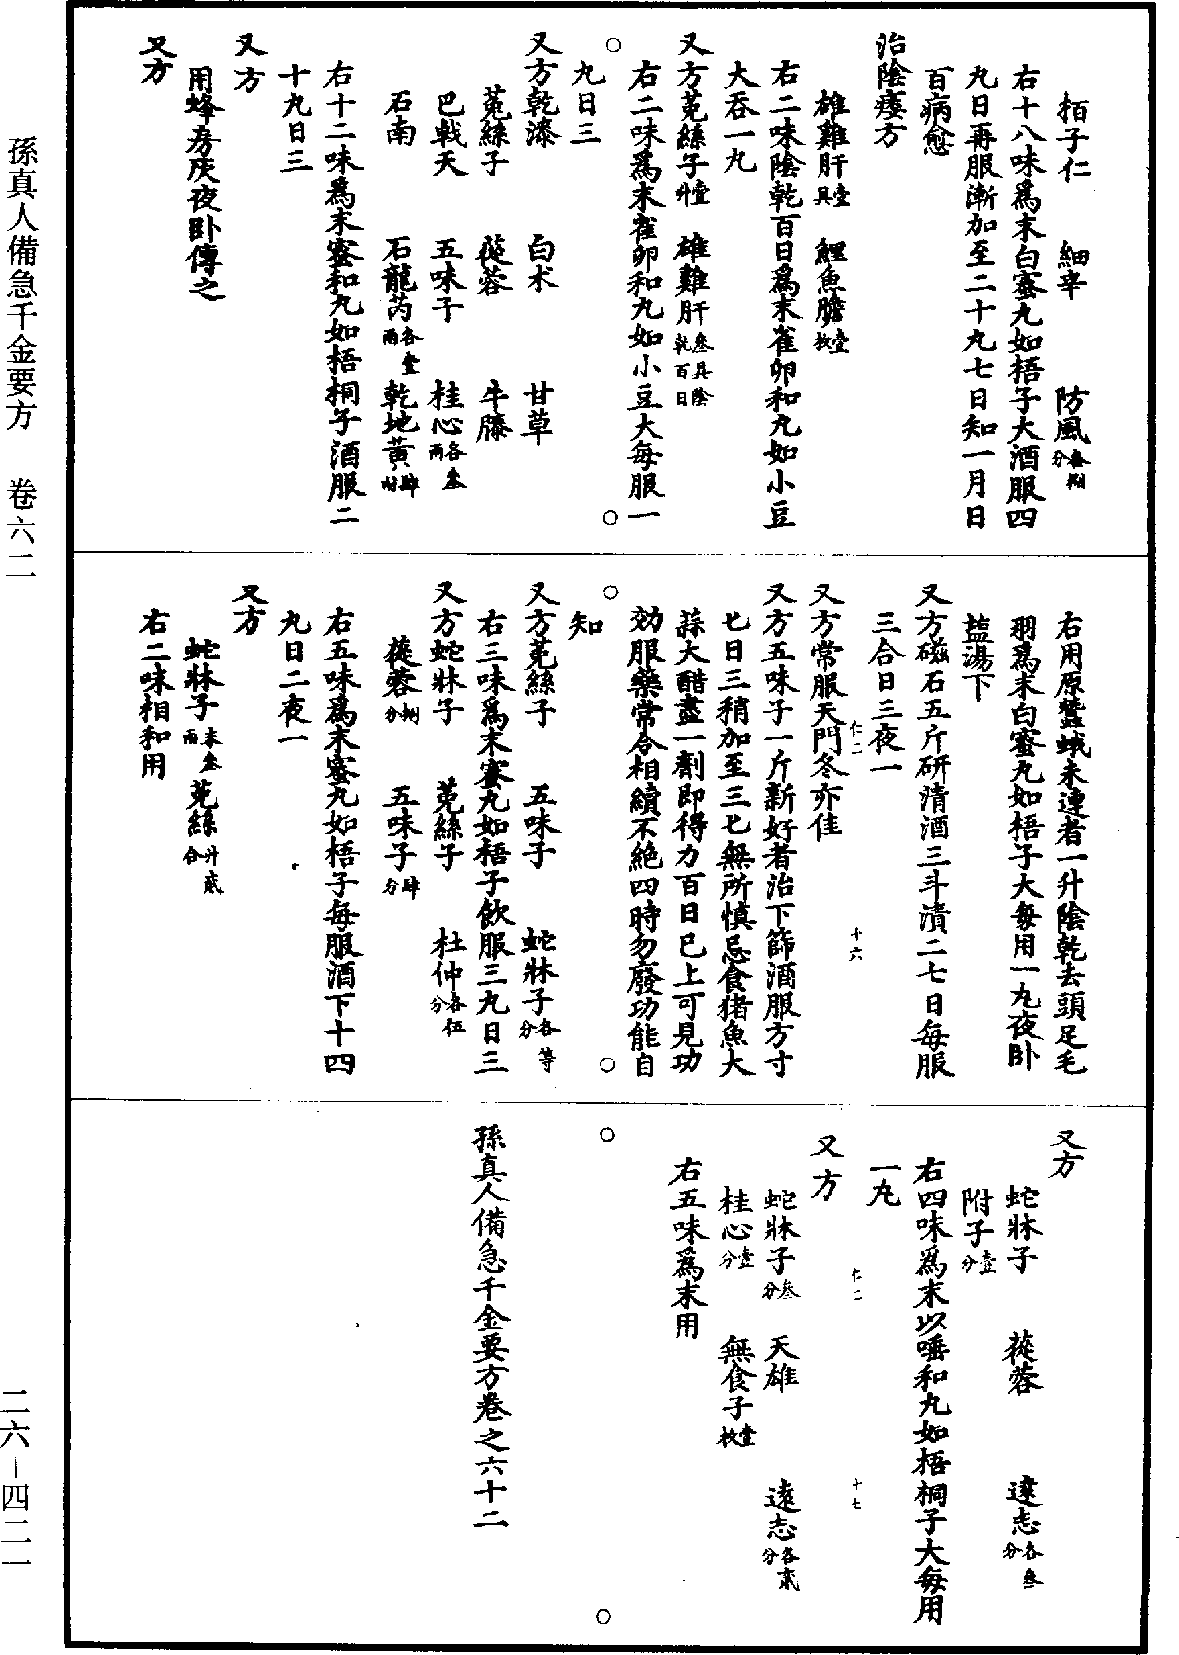 栢子仁　細辛　防風各捌分
右十八味爲末白蜜丸如梧子大酒服四
丸日再服漸加至二十丸七日知一月日
百病愈
治陰痿方
雄雞肝壹具　鯉魚膽壹枚
右二味陰乾百日爲末雀卵和丸如小豆
大吞一丸
又方菟絲子壹升　雄雞肝叁具陰乾百日
右二味爲末雀卵和丸如小豆大每服一
丸日三
又方乾漆　白术　甘草
菟絲子　蓯蓉　牛膝
巴戟天　五味子　桂心各叁兩
石南　石龍芮各壹兩　乾地黃肆兩
右十二味爲末蜜和丸如梧桐子酒服二
十丸日三
又方
用蜂房灰夜卧傳之
又方
右用原蠶蛾未連者一升陰乾去頭足毛
羽爲末白蜜丸如梧子大每用一丸夜卧
塩湯下
又方磁石五斤研清酒三斗漬二七日每服
三合日三夜一
仁二　十六
又方常服天門冬亦佳
又方五味子一斤新好者治下篩酒服方寸
匕日三稍加至三匕無所慎忌食猪魚大
蒜大醋盡一劑即得力百日已上可見功
効服藥常合相續不絶四時勿廢功能自
知
又方菟絲子　五味子　蛇牀子各等分
右三味爲末蜜丸如梧子飲服三丸日三
又方蛇牀子　菟絲子　杜仲各伍分
蓯蓉捌分　五味子肆分
右五味爲末蜜丸如梧子每服酒下十四
丸日二夜一
又方
蛇牀子末叁兩　菟絲汁貳合
右二味相和用
又方
蛇牀子　蓯蓉　遠志各叁分
附子壹分
右四味爲末以唾和丸如梧桐子大每用
一丸
仁二　十七
又方
蛇牀子叁分　天雄　遠志各貳分
桂心壹分　無食子壹枚
右五味爲末用
孫真人備急千金要方卷之六十二
孫真人備急千金要方　卷六二
二六－四二一